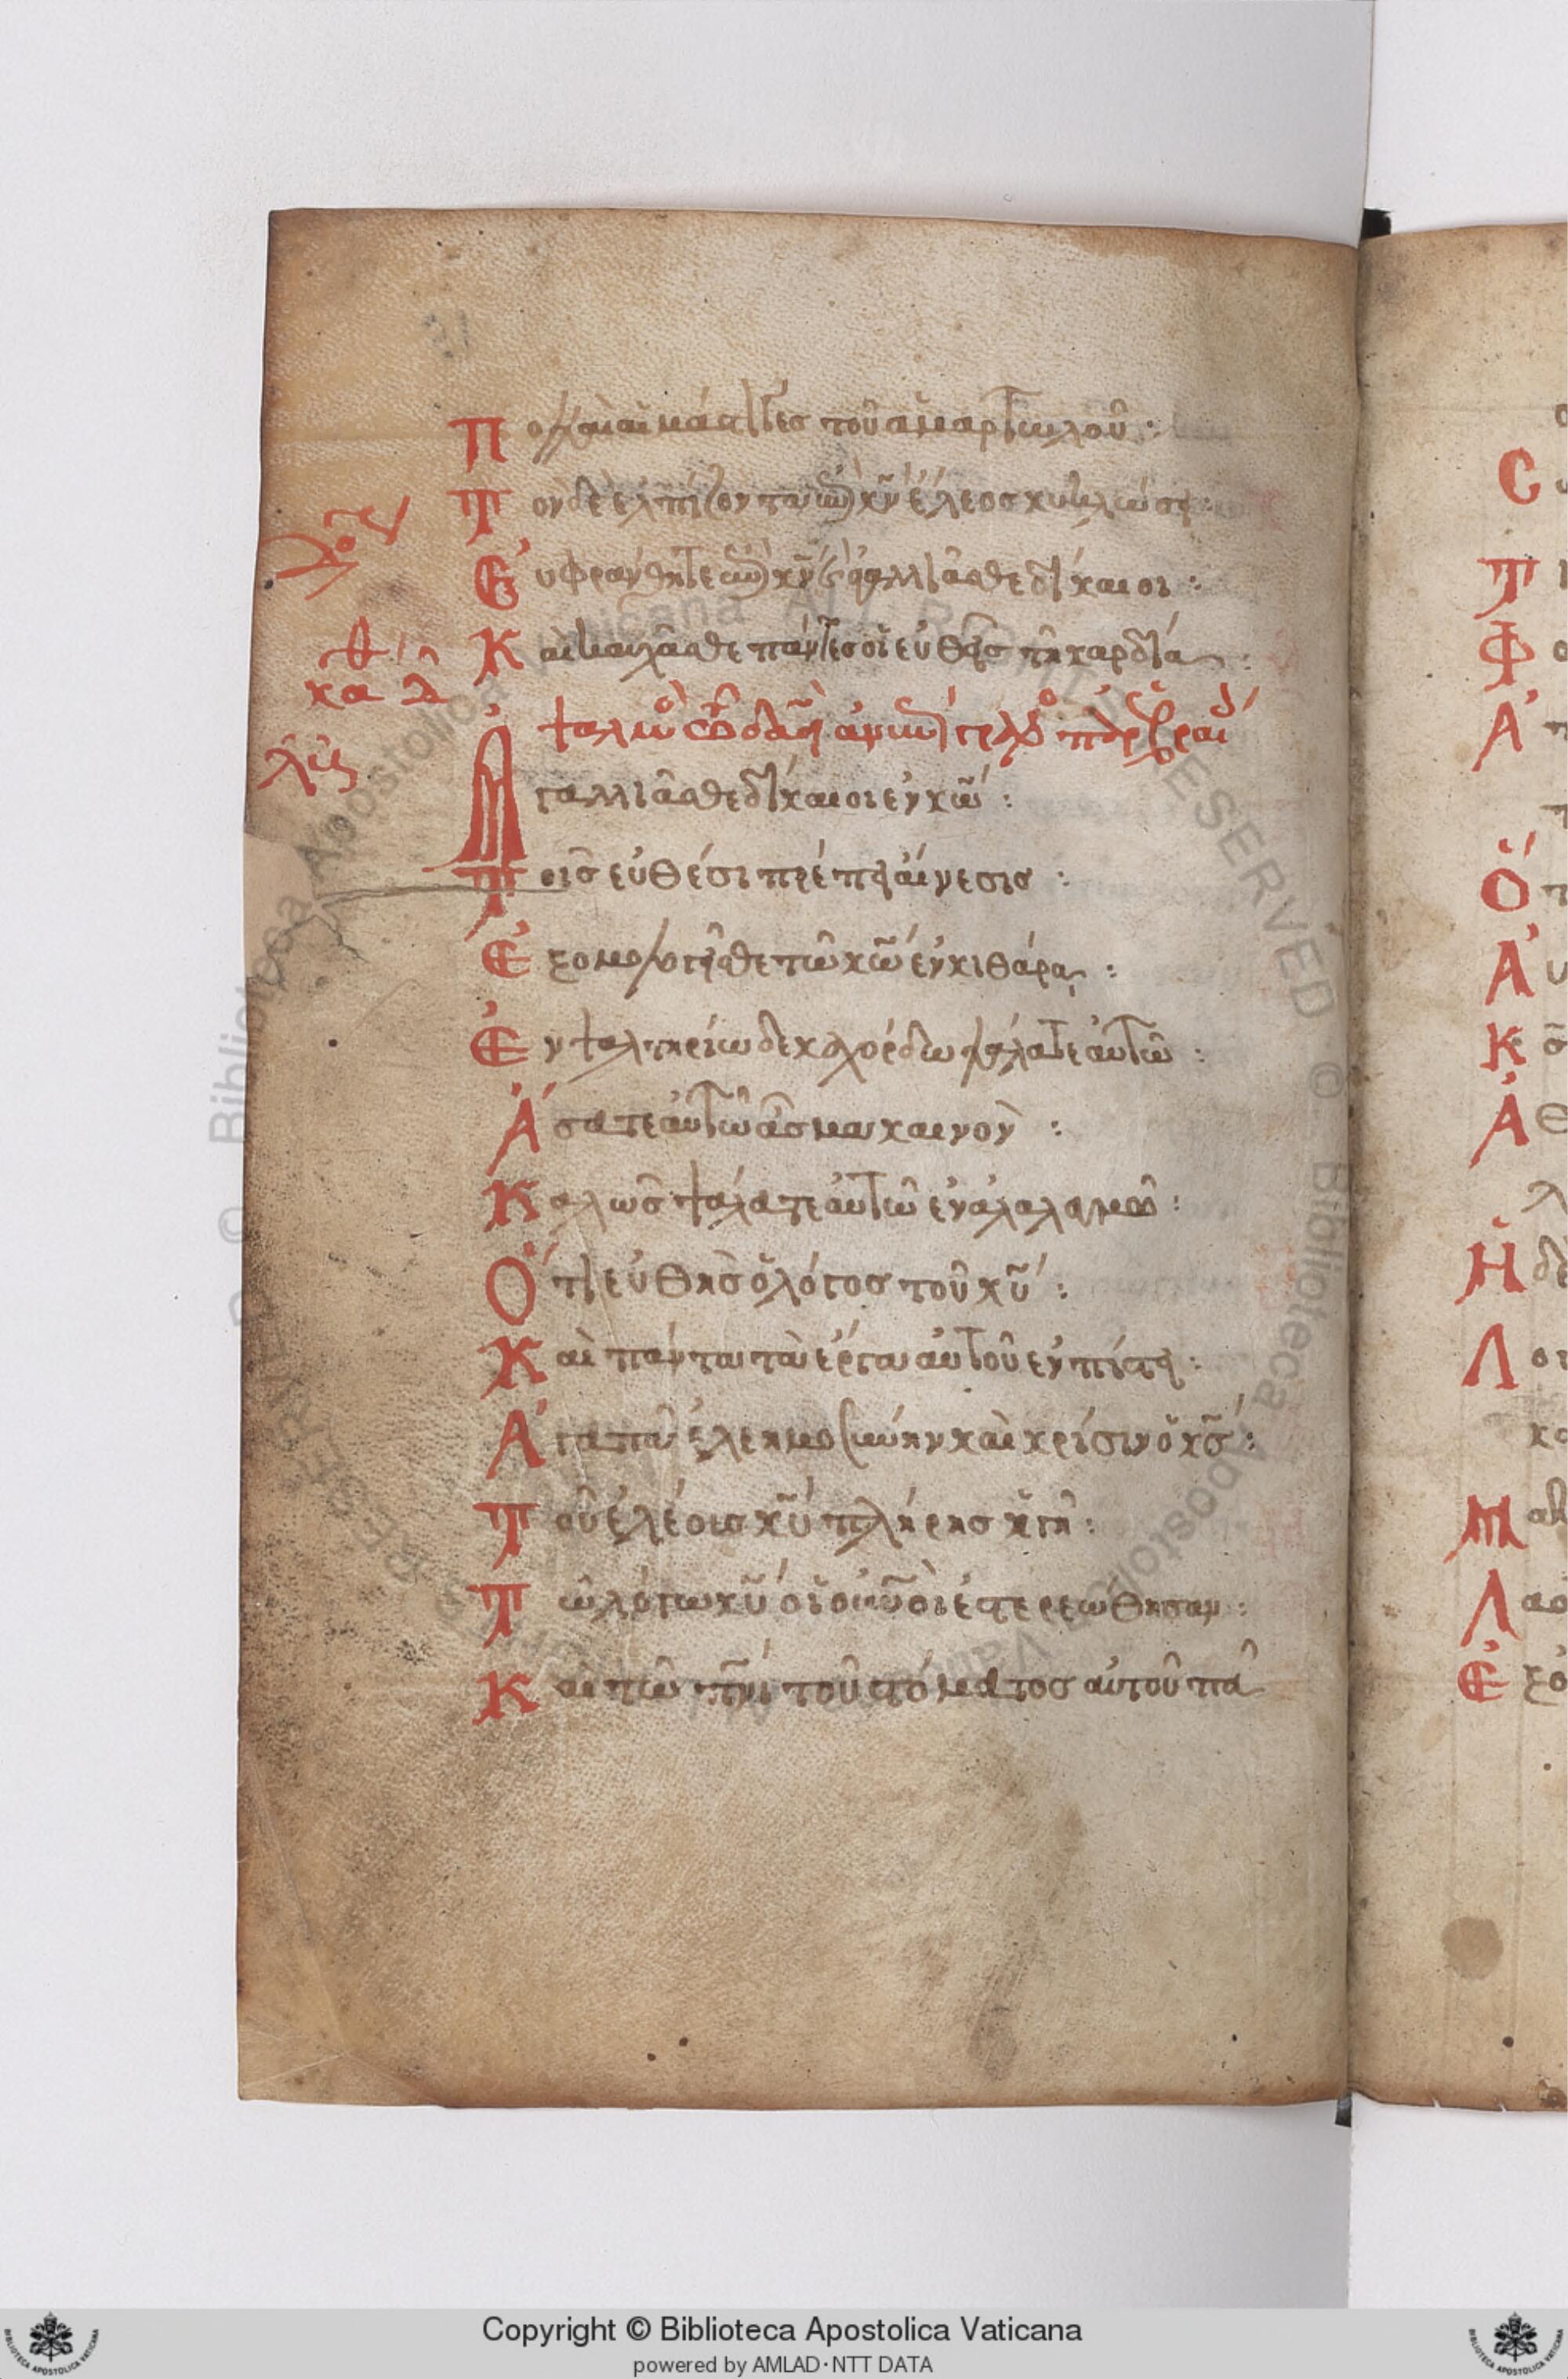 Πολλαὶ αἱ μάστιγες τοῦ ἁμαρτωλοῦ :
Τὸν δὲ ἐλπίζοντα ἐπὶ κ̅ν̅ ἔλεος κυκλώσει :
Εὐφράνθητε ἐπὶ κ̅ν̅ καὶ ἀγαλλιᾶσθε δίκαιοι :
Καὶ καυχᾶσθε πάντες οἱ εὐθεῖς τῇ καρδία :
Ἀγαλλιᾶσθε δίκαιοι ἐν κ̅ω̅ :
Τοῖς εὐθέσι πρέπει αἴνεσις :
Ἐξομολογεῖσθε τῶ κ̅ω̅ ἐν κιθάρα :
Ἐν ψαλτηρίω δεκαχόρδω ψάλατε αὐτῶ :
Ἄσατε αὐτῶ ἆσμα καινὸν :
Καλῶς ψάλατε αὐτῶ ἐν ἀλαλαγμῶ :
Ὅτι εὐθὴς ὁ λόγος τοῦ κ̅υ̅ :
Καὶ πάντα τὰ ἔργα αὐτοῦ ἐν πίστει :
Ἀγαπᾶ ἐλεημοσύνην καὶ κρίσιν ὁ κ̅ς̅ :
Τοῦ ἐλέους κ̅υ̅ πλήρης ἡ γῆ :
Τῶ λόγω κ̅υ̅ οἱ οὐ̅ν̅οι ἐστερεώθησαν :
Καὶ τῶ π̅ν̅ι̅ τοῦ στόματος αὐτοῦ πᾶ
Copyright © Biblioteca Apostolica Vaticana
powered by AMLAD·NTT DATA